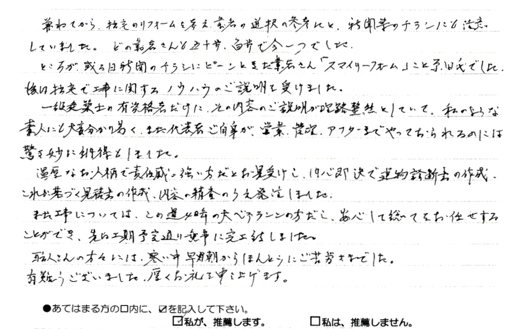 兼ねてから、拙宅のリフォームを考え業者の選択の参考にと、新聞等のチラシにも注意
していました。どの業者さんも五十歩、百歩で今一つでした。
ところが、或る日新聞のチラシにピーンときた業者さん「スマイリーフォーム」こと原田氏でした。
後日拙宅で工事に関するノウハウのご説明を受けました。
一級建築士の有資格者だけに、その内容のご説明が理路整然としていて、私のような
素人にも大変分り易く、また代表者ご自身が、営業、管理、アフターまでやっておられるのには
驚き妙に納得もしました。
温厚なお人柄で責任感の強い方だとお見受けし、内心即決で建物診断書の作成、
これに基づく見積書の作成、内容の精査のうえ発注しました。
本工事については、この道何時の大ベテランの方だし、安心して総てをお任せする
ことができ、先日工期予定通り無事に完工致しました。
職人さんの方々には、寒い中早朝からほんとうにご苦労さまでした。
有難うございました。厚くお礼を申し上げます。
●あてはまる方の口内に、☑を記入して下さい。
☑私が、推薦します。 □私は、推薦しません。